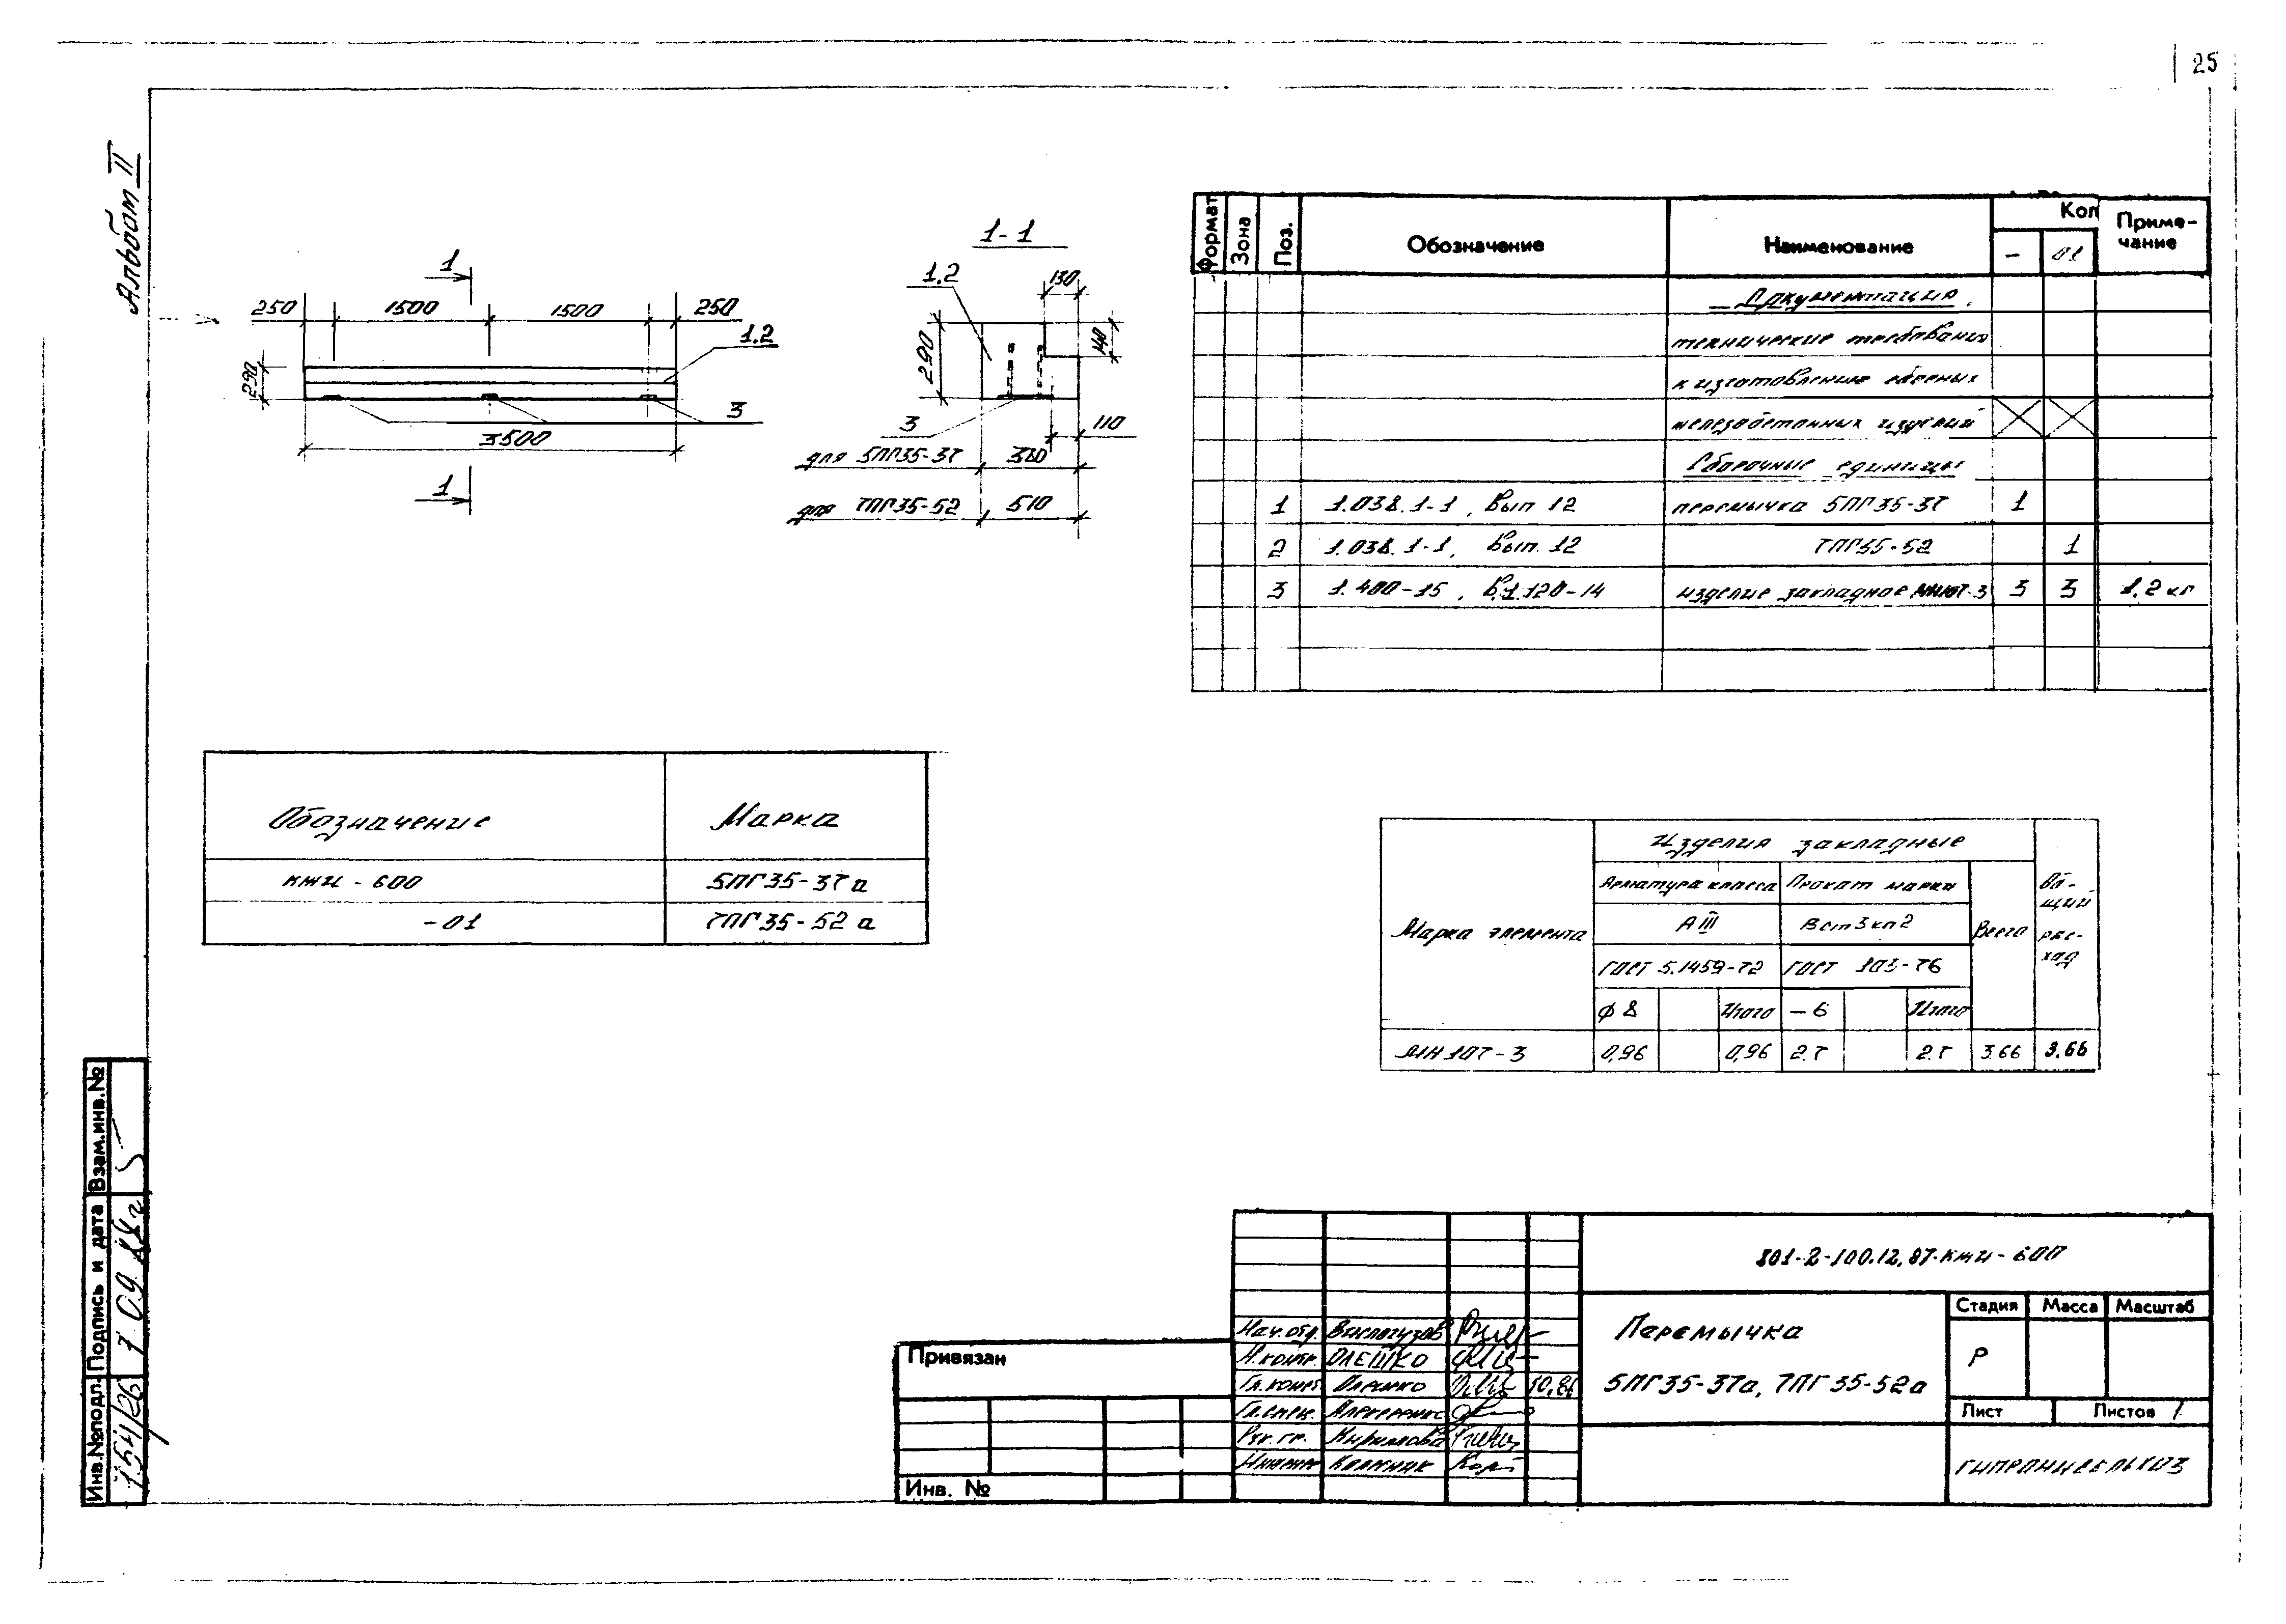 25
Альбом II
1
250 1500 1500 250
1.2
290
3
3500
1
1-1
1.2
130
290
140
3
110
для 5ПГ35-37 380
для 7ПГ35-52 510
Формат Зона Поз. Обозначение Наименование Кол Приме-
чание
- 01
Документация
технические требования
к изготовлению сборных
железобетонных изделий
Сборочные единицы
1 1.038.1-1, Вып 12 перемычка 5ПГ35-37 1
2 1.038.1-1, Вып. 12 7ПГ35-52 1
3 1.400-15, В.1.120-14 изделие закладное МН107-3 3 3 1,2 кг
Обозначение Марка
КЖИ - 600 5ПГ35-37а
-01 7ПГ35-52а
Марка элемента
Изделия закладные
Арматура класса Прокат марки
Всего
Об-
щий
рас-
ход
А III Вст3кп2
ГОСТ 5.1459-72 ГОСТ 103-76
Ø8 Итого -6 Итого
МН 107-3 0,96 0,96 2.7 2.7 3.66 3.66
Взам.инв.№
Подпись и дата 7 09 88г
Инв.№подл. 154/26
801-2-100.12.87-КЖИ-600
Перемычка
5ПГ35-37а, 7ПГ35-52а
Стадия Масса Масштаб
Р
Лист Листов 1
ГИПРОНИСЕЛЬХОЗ
Нач.отд.
Н.контр. ОЛЕШКО
Гл.констр. Олешко 10.86
Гл.спец.
Рук.гр. Каримова
Привязан
Инв. №